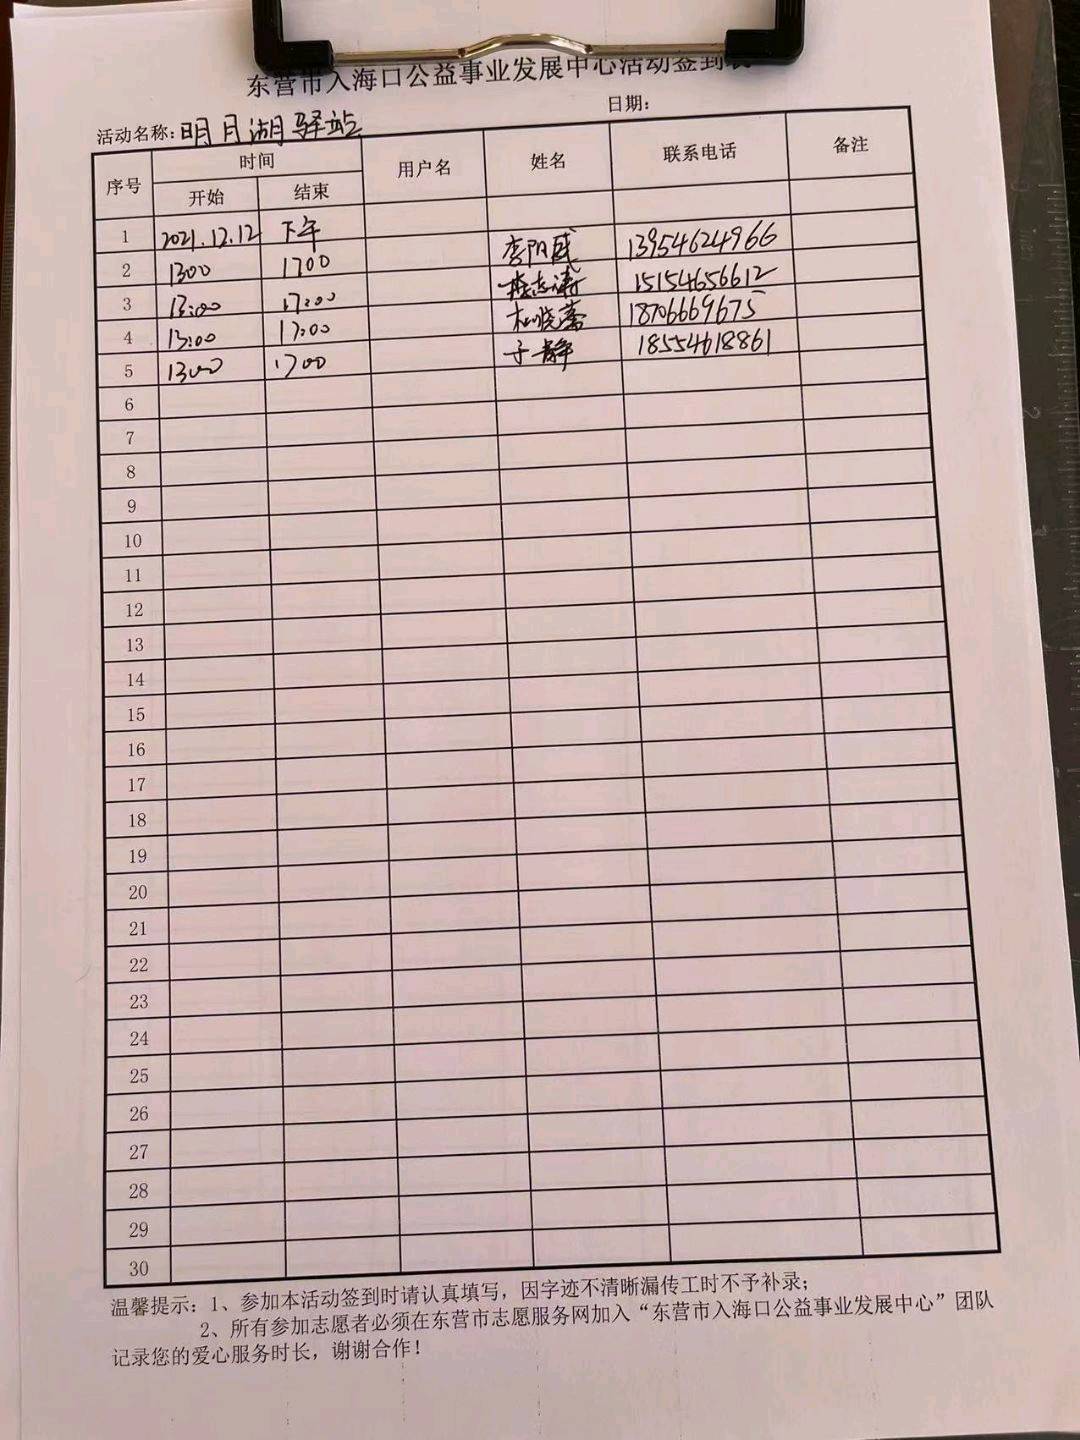 东营市入海口公益事业发展中心活动签到表
活动名称：明月湖驿站 日期：
序号 时间 用户名 姓名 联系电话 备注
开始 结束
1 2021.12.12 下午
2 1300 1700 13954624966
3 13:00 17:00 15154656612
4 13:00 17:00 18706669675
5 1300 1700 于静 18554618861
6
7
8
9
10
11
12
13
14
15
16
17
18
19
20
21
22
23
24
25
26
27
28
29
30
温馨提示：1、参加本活动签到时请认真填写，因字迹不清晰漏传工时不予补录；
2、所有参加志愿者必须在东营市志愿服务网加入“东营市入海口公益事业发展中心”团队
记录您的爱心服务时长，谢谢合作！